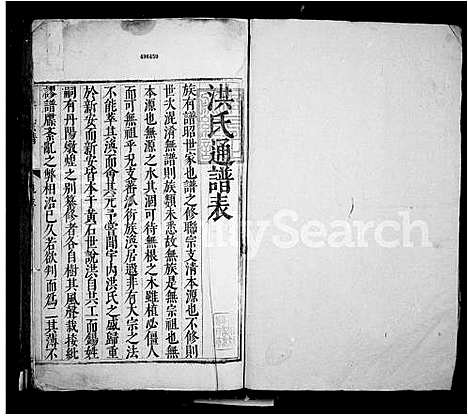 496459
洪氏通譜表
族有譜昭世家也譜之修聯宗支清本源也不修則
世次混淆無譜則族類未悉故無族是無宗祖也無
本源也無源之水其涸可待無根之木雖植必僵人
而可無祖乎況支蕃派衍族居遐非有大宗之法
不能萃其渙而會其元予嘗聞宇內洪氏之盛歸重
於新安而新安皆本于黃石世說洪自共工而錫姓
嗣有丹陽燉煌之別纂修者各自樹其風聲裁接紕
謬譜牒紊亂之弊相沿已久若欲判而為二其薄不
MySearch